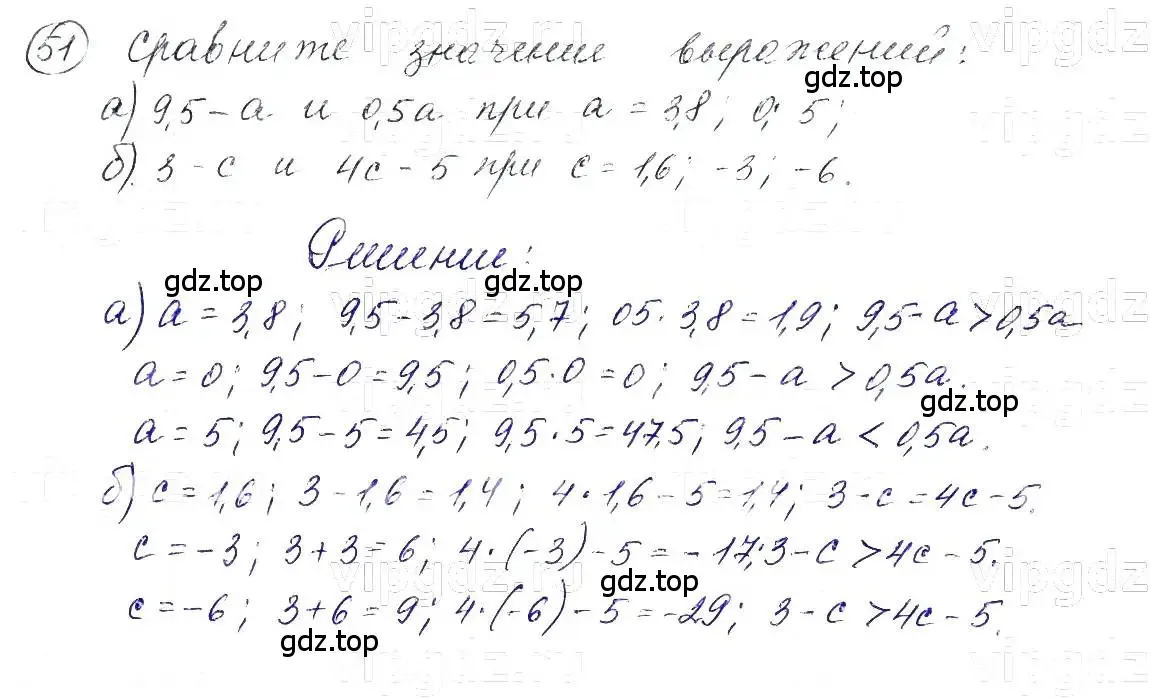 51 Сравните значения выражений:
gdz.top
а) 9,5 - а и 0,5а при а = 3,8; 0; 5;
б) 3 - с и 4с - 5 при с = 1,6; -3; -6.
Решение:
gdz.top gdz.top
а) а = 3,8; 9,5 - 3,8 = 5,7; 05 · 3,8 = 1,9; 9,5 - а > 0,5а
а = 0; 9,5 - 0 = 9,5; 0,5 · 0 = 0; 9,5 - а > 0,5а.
gdz.top
а = 5; 9,5 - 5 = 4,5; 9,5 · 5 = 47,5; 9,5 - а < 0,5а.
б) с = 1,6; 3 - 1,6 = 1,4; 4 · 1,6 - 5 = 1,4; 3 - с = 4с - 5.
с = -3; 3 + 3 = 6; 4 · (-3) - 5 = -17; 3 - с > 4с - 5.
gdz.top
с = -6; 3 + 6 = 9; 4 · (-6) - 5 = -29; 3 - с > 4с - 5.
gdz.top